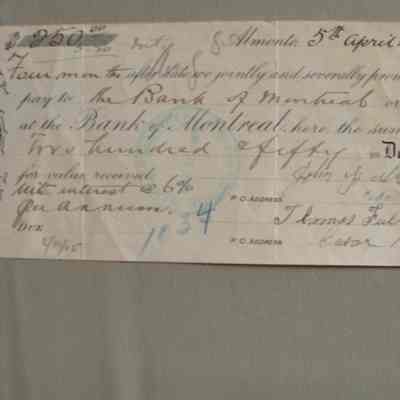 $ 250 00/00 Almonte, 5th April
Four months after date we jointly and severally prom
pay to the Bank of Montreal or
at the Bank of Montreal, here, the sum
Two hundred & fifty Do
for value received John
with interest @ 6%
per annum. P.O. ADDRESS
1034 Thomas
P.O. ADDRESS Cedar